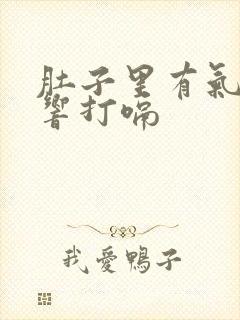 肚子里有氣
響打嗝
我愛鴨子